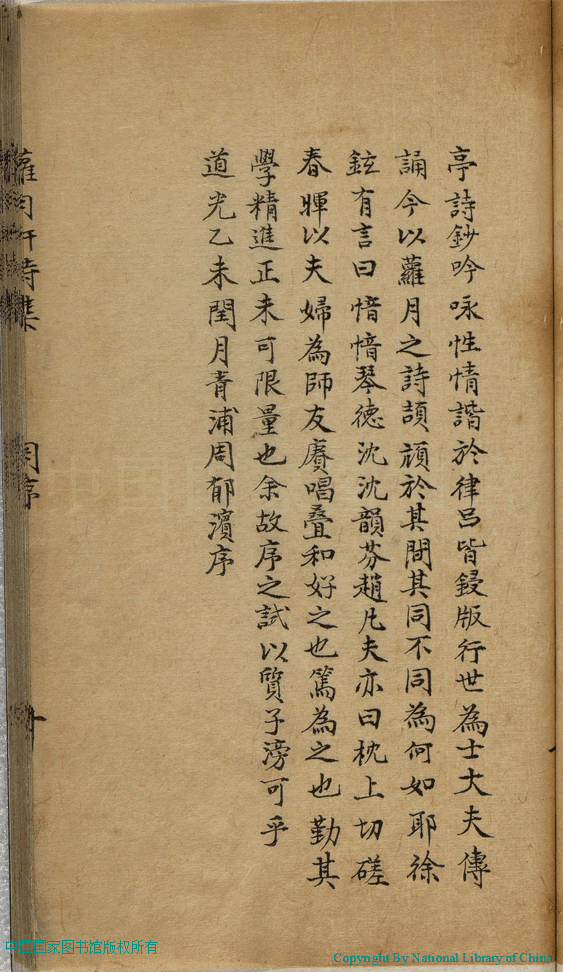 亭詩鈔吟咏性情諧於律呂皆鋟版行世為士大夫傳
誦今以蘿月之詩頡頏於其間其同不同為何如耶徐
鉉有言曰愔愔琴德沈沈韻芬趙凡夫亦曰枕上切磋
春暉以夫婦為師友賡唱疊和好之也篤為之也勤其
學精進正未可限量也余故序之試以質子滂可乎
道光乙未閏月青浦周郁濱序
蘿月軒詩集 周序
中国国家图书馆版权所有
Copyright By National Library of China